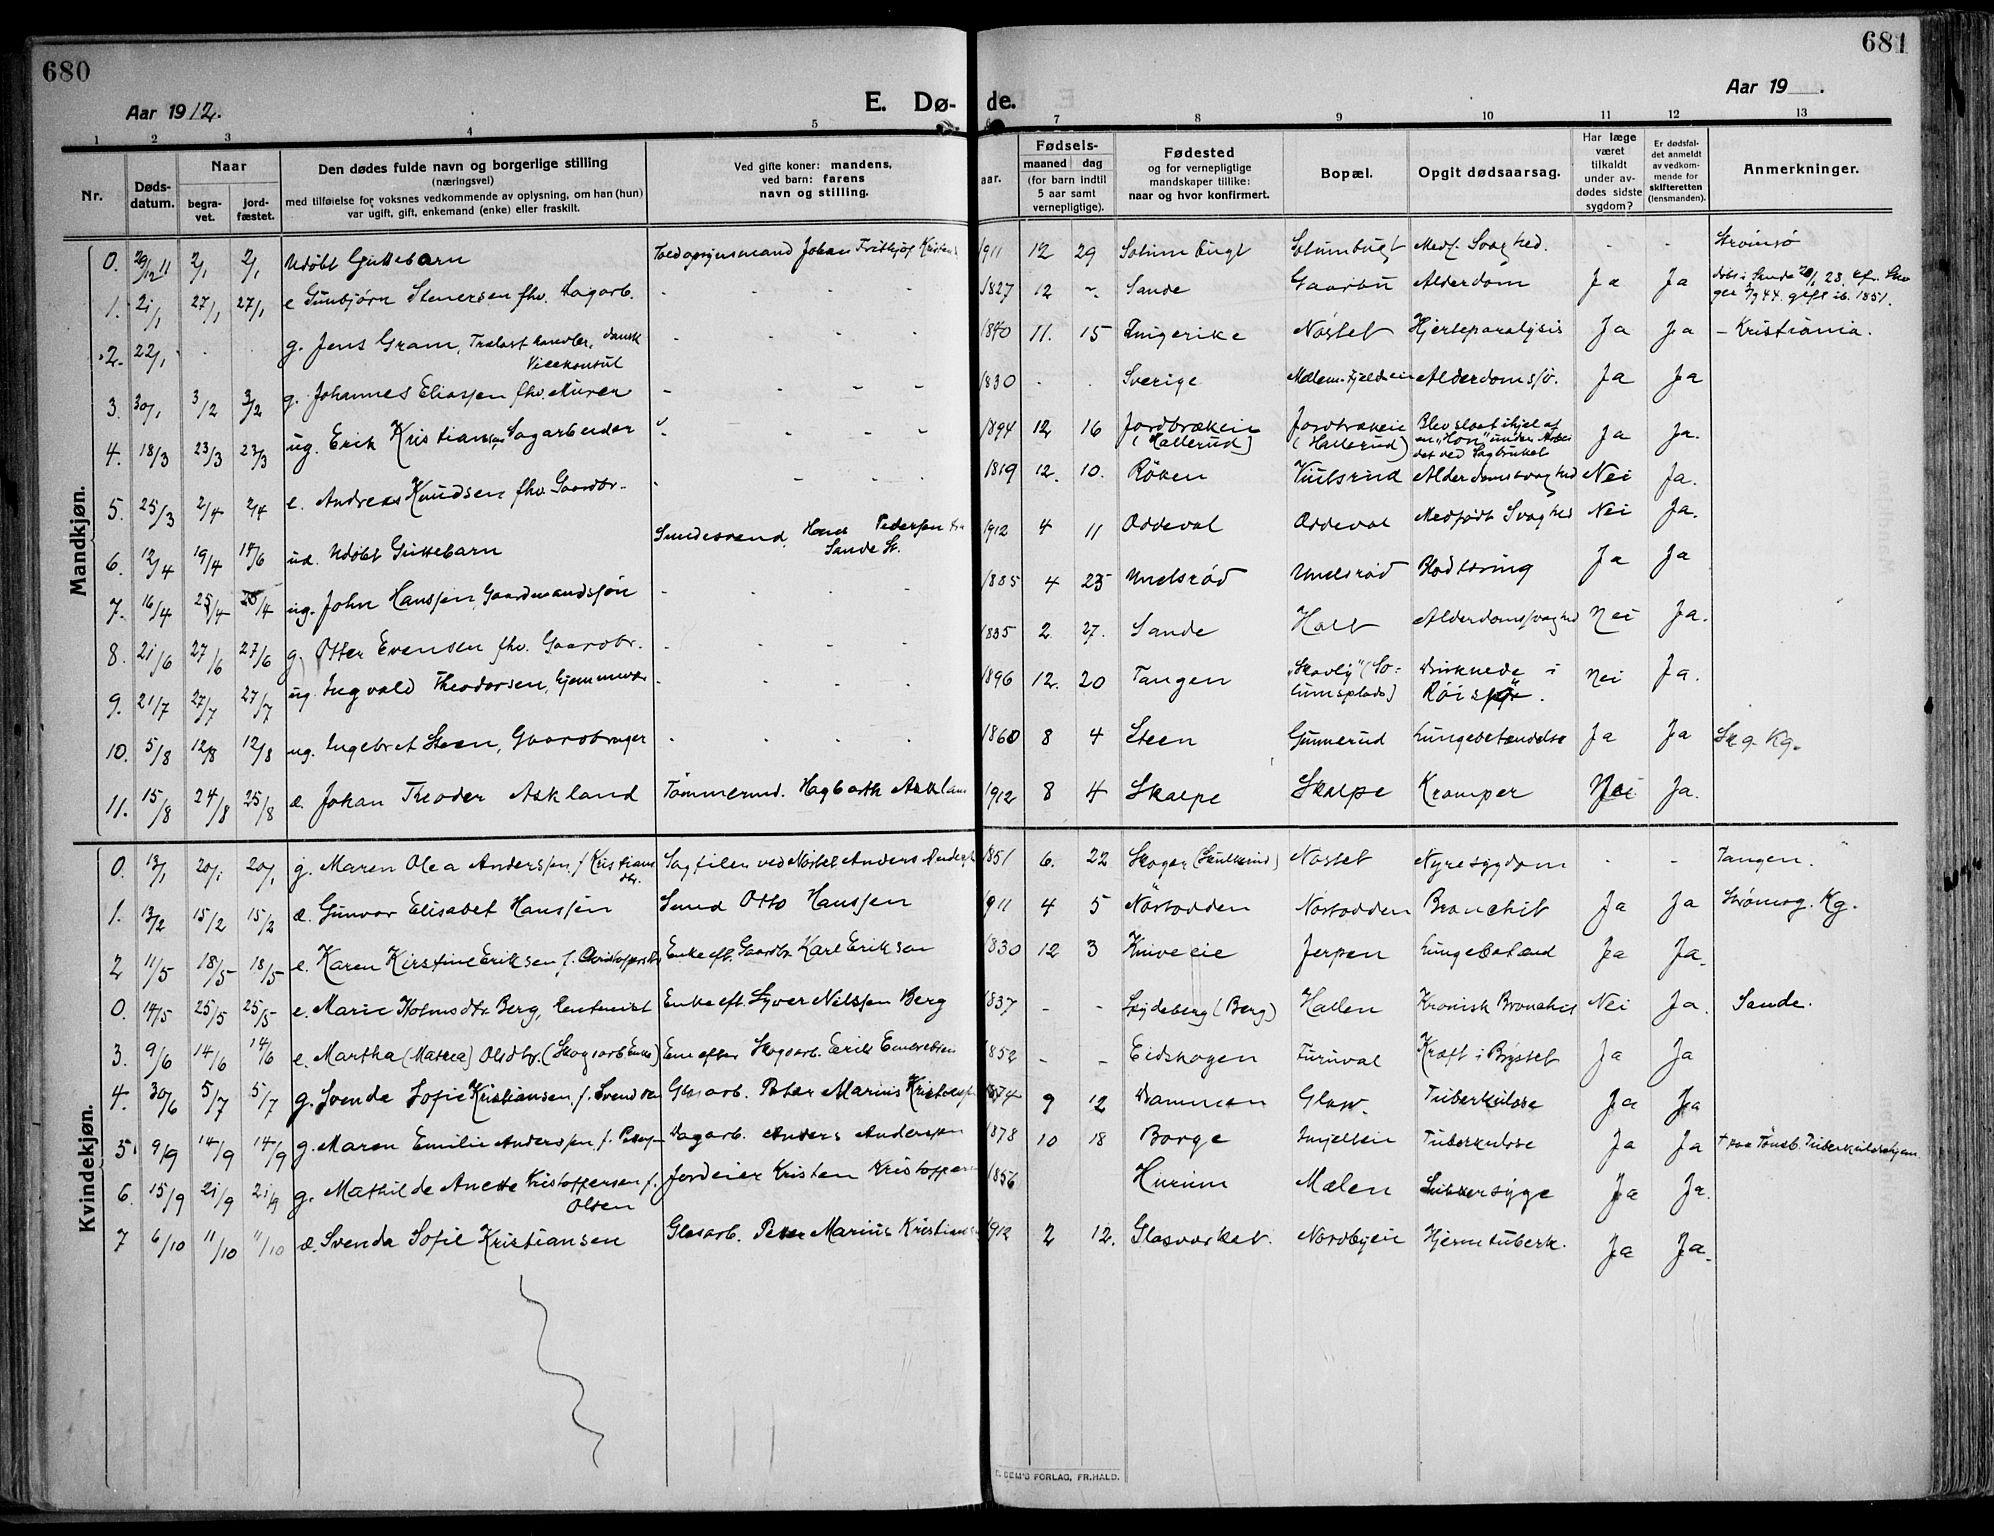 680
681
Aar 1912.
E. Dø- de.
Aar 19 .
1 2 3 4 5 7 8 9 10 11 12 13
Nr.
Døds-
datum.
Naar
begra-
vet.
jord-
fæstet.
Den dødes fulde navn og borgerlige stilling
(næringsvei)
med tilføielse for voksnes vedkommende av oplysning, om han (hun)
var ugift, gift, enkemand (enke) eller fraskilt.
Ved gifte koner: mandens,
ved barn: farens
navn og stilling.
aar.
Fødsels-
maaned dag
(for barn indtil
5 aar samt
vernepligtige).
Fødested
og for vernepligtige
mandskaper tillike:
naar og hvor konfirmert.
Bopæl.
Opgit dødsaarsag.
Har læge
været
tilkaldt
under av-
dødes sidste
sygdom?
Er dødsfal-
det anmeldt
av vedkom-
mende for
skifteretten
(lensmanden).
Anmerkninger.
Mandkjøn.
0. 29/12 11 2/1 2/1 Udøbt Guttebarn Johan Frithjof 1911 12 29 Medf. Svaghed. - - Strömsö
1. 21/1 27/1 27/1 e Gunbjørn Stenersen fhv. Dagarb. - - - - 1827 12 Sande Alderdom Ja Ja
2. 22/1 g. Jens Gram, Trælast handler, dansk
Vicekonsul - - - - 1840 11. 15 Nøstet Hjerteparalysis Ja Ja - Kristiania.
3. 30/1 3/2 3/2 g. Johannes Eliassen fhv. Murer - - - - 1830 - - Sverige Ja Ja
4. 18/3 23/3 23/3 ug. Erik Kristiansen, Sagarbeider - - - 1894 12 16 Jordbrækeie
(Hallerud) Jordbrækeie
(Hallerud) Blev slaat ihjel af
en "Hon" under Arbei
det ved Sagbruket Ja Ja.
5. 25/3 2/4 2/4 e. Andreas Knudsen fhv. Gaardbr. - - - - 1819 12. 10. Röken Alderdomssvaghed Nei Ja.
6. 12/4 19/4 14/6 ud. Udøbt Guttebarn Hans Pedersen
Sande St. 1912 4 11 Oddeval Oddeval Medfødt Svaghed Nei Ja.
7. 16/4 25/4 25/4 ug. John Hanssen, Gaardmandssøn - - - - 1885 4 25 Undsrød Undsrød Blodtæring Ja Ja
8. 21/6 27/6 27/6 g. Otter Evensen fhv. Gaardbr. - - - - 1835 2 27. Sande Holt Alderdomssvaghed Nei Ja.
9. 21/7 27/7 27/7 ug. Ingvald Theodorsen, hjemmevær - - - - 1896 12. 20 Tangen "Skovly" (So-
lumsplads) Druknede i Nei Ja.
10. 5/8 12/8 12/8 ug. Ingebret Steen, Gaardbruger - - - - 1860 8 4 Steen Gunnerud Lungebetændelse Ja Ja Skg. Kg.
11. 15/8 24/8 25/8 æ. Johan Theodor Askland Tömmermd. Hagbarth Askland 1912 8 4 Skalpe Skalpe Kramper Nei Ja.
Kvindekjøn.
0. 13/1 20/1 20/1 g. Maren Olea Anderssen, f. Kristians
dtr. 1851 6. 22 Skoger Nøstet Nyresygdom - - Tangen.
1. 13/2 15/2 15/2 æ. Gunvor Elisabet Hanssen Smed Otto Hanssen 1911 4 5 Nørsodden Nørsodden Bronchit Ja Ja Strømsg. Kg.
2 11/5 18/5 18/5 e. Karen Kirstine Eriksen Enke eft. Gaardbr. Karl Eriksen 1830 12 3 Kniveeie Jerpen Lungebetænd Ja Ja.
0. 14/5 25/5 25/5 e. Marie Holmsdtr. Berg, Enke eft. Syver Nilssen Berg 1837 - - (Berg) Hallen Kronisk Bronchit Nei Ja. Sande.
3. 9/6 14/6 14/6 e. Martha (Mathea) Olsdtr. (Skogsarb Enke) Enke efter Skogsarb. Erik 1852 - - Eidskogen Kræft i Brystet Ja Ja
4. 30/6 5/7 5/7 g. Svenda Sofie Kristiansen Glasarb. Peter Marius Kristiansen 1874 9 12 Drammen Glasv. Tuberkulose Ja Ja
5. 9/9 14/9 14/9 g. Maren Emilie Anderssen Dagarb. Anders Anderssen 1878 10 18 Borge Tuberkulose Ja Ja + paa Tønsb. Tuberkulosehjem
6. 15/9 21/9 21/9 g. Mathilde Anette Kristoffersen f.
Olsen Jordeier Kristen Kristoffersen 1856 Hurum Mælen Sukkersyge Ja Ja.
7 6/10 11/10 11/10 æ. Svenda Sofie Kristiansen Glasarb. Peter Marius Kristiansen 1912 2 12. Glasværket. Nordbyeie Hjernetuberk. Ja Ja.
FORLAG, FR. HALD.